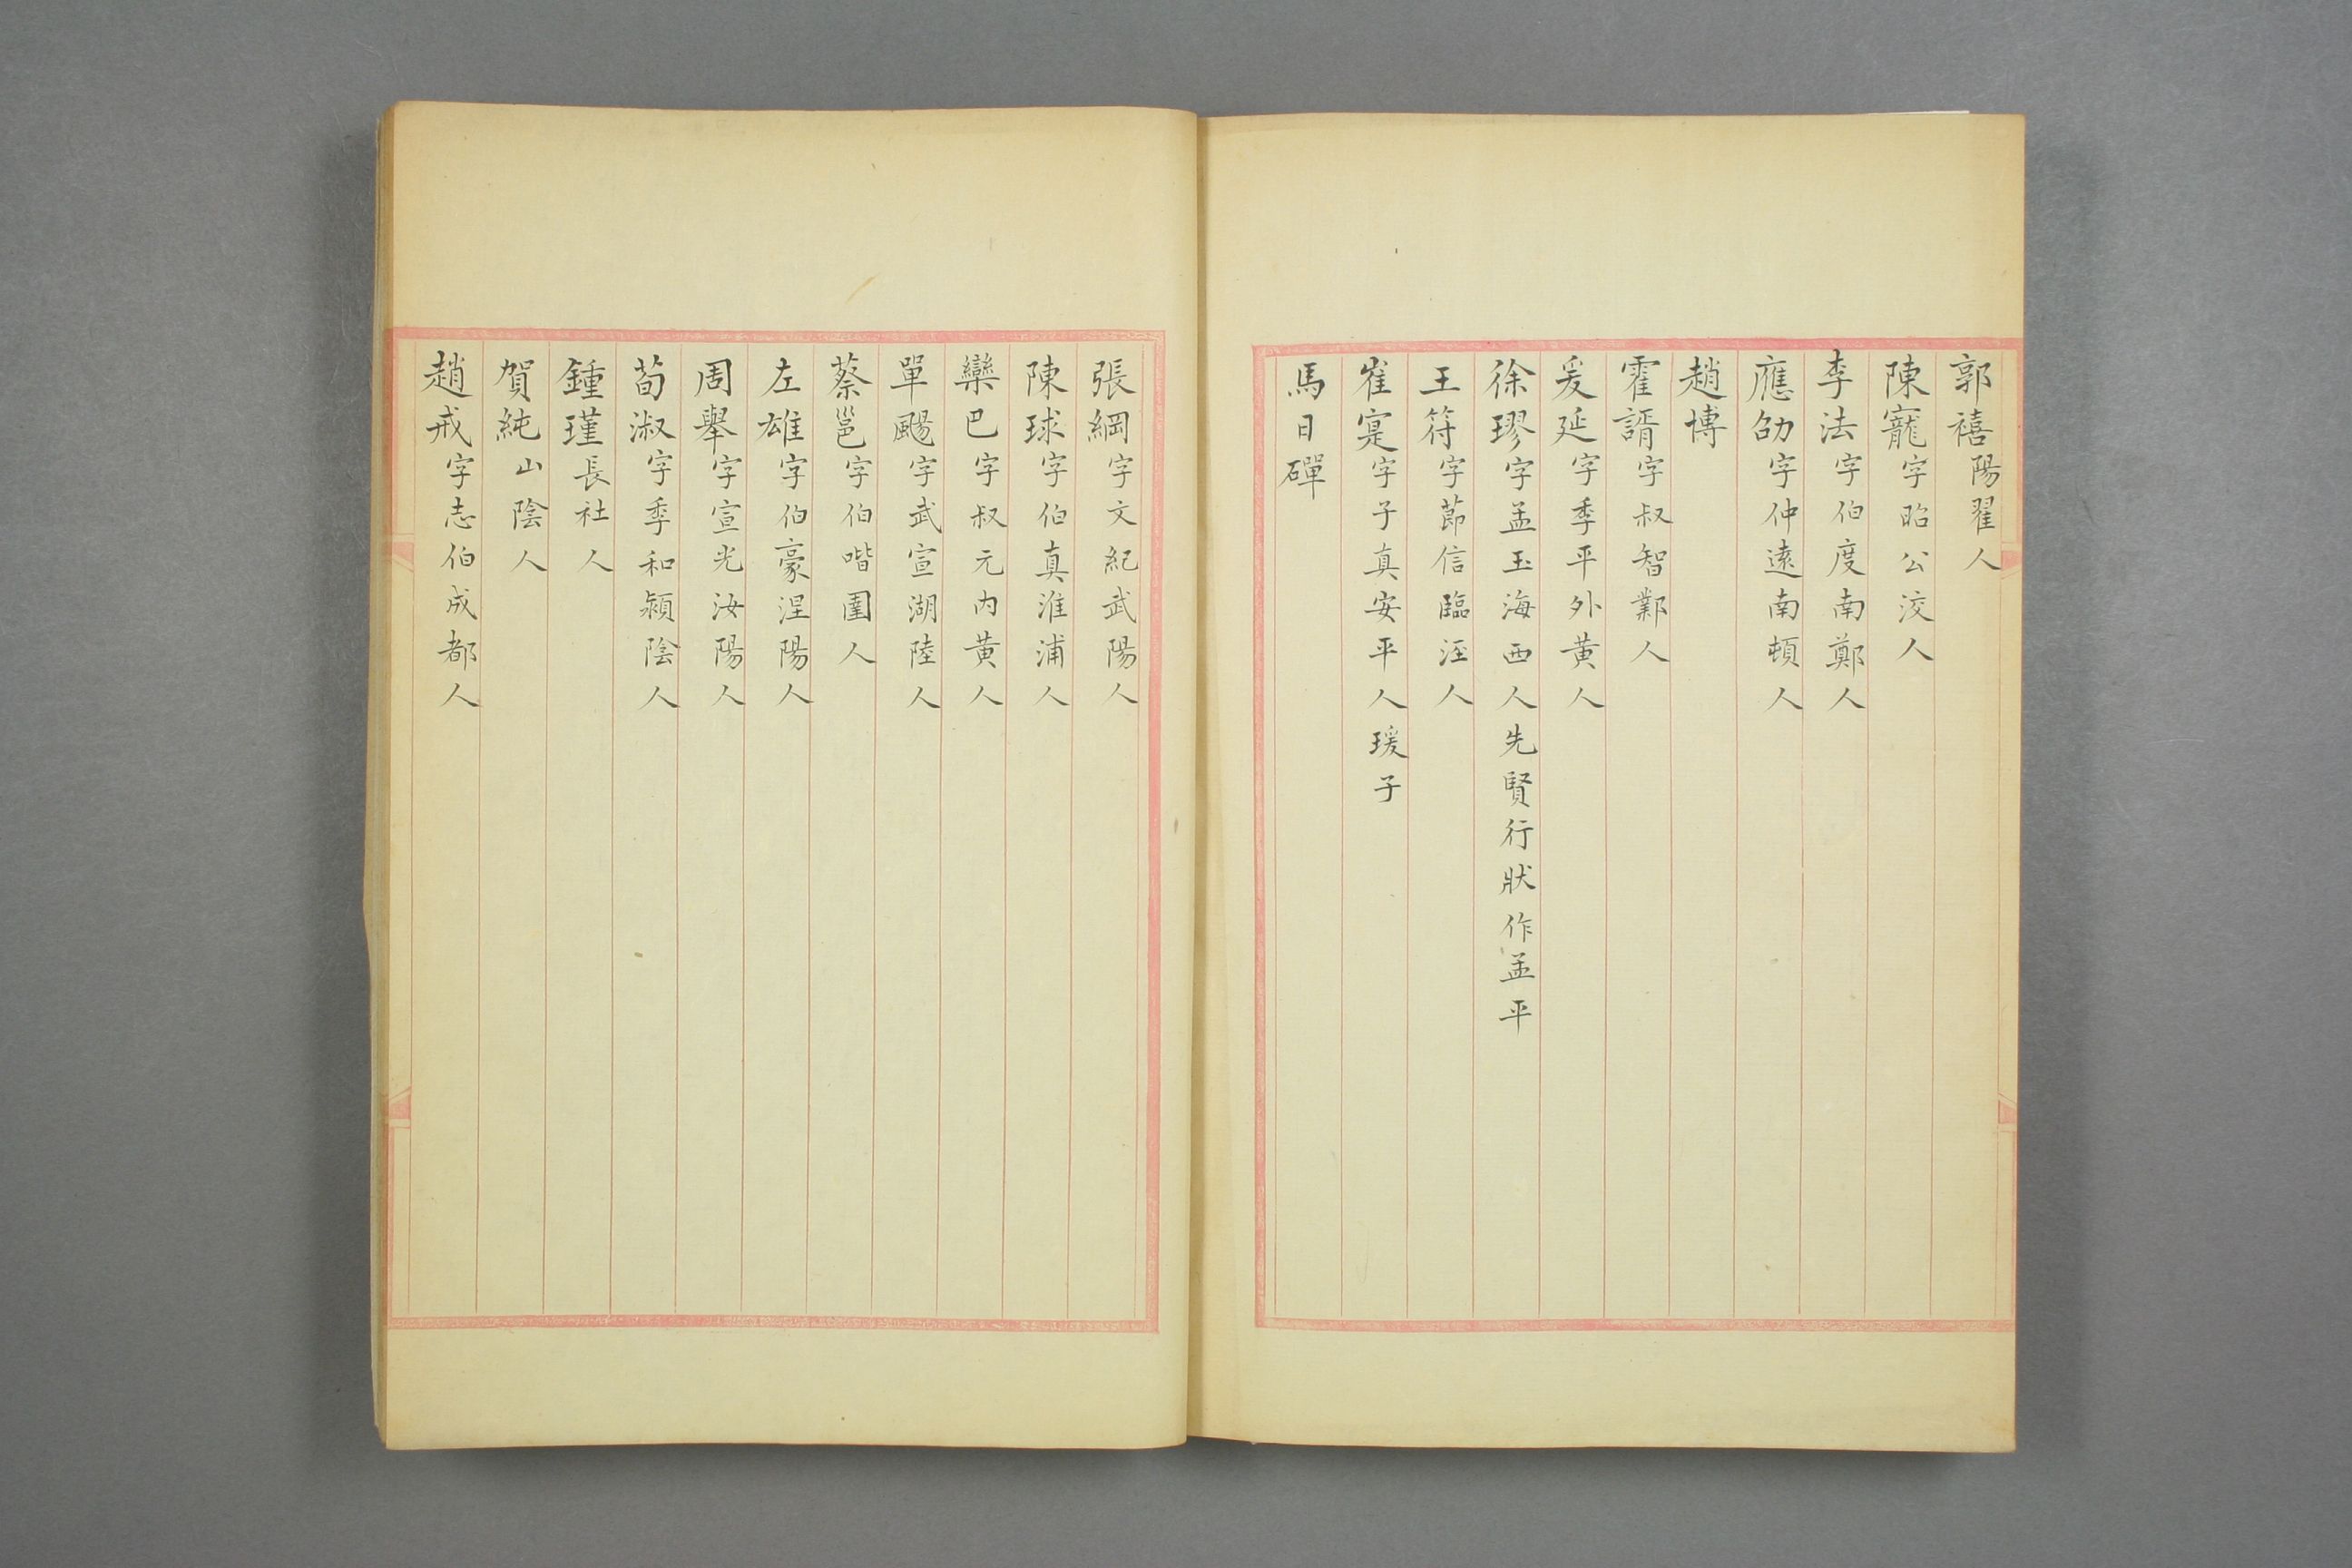 郭禧陽翟人
陳寵字昭公洨人
李法字伯度南鄭人
應劭字仲遠南頓人
趙博
霍諝字叔智鄴人
爰延字季平外黄人
徐璆字孟玉海西人先賢行狀作孟平
王符字節信臨涇人
崔寔字子真安平人瑗子
馬日磾
張綱字文紀武陽人
陳球字伯真淮浦人
欒巴字叔元内黄人
單颺字武宣湖陸人
蔡邕字伯喈圉人
左雄字伯豪涅陽人
周舉字宣光汝陽人
荀淑字季和潁陰人
鍾瑾長社人
賀純山陰人
趙戒字志伯成都人